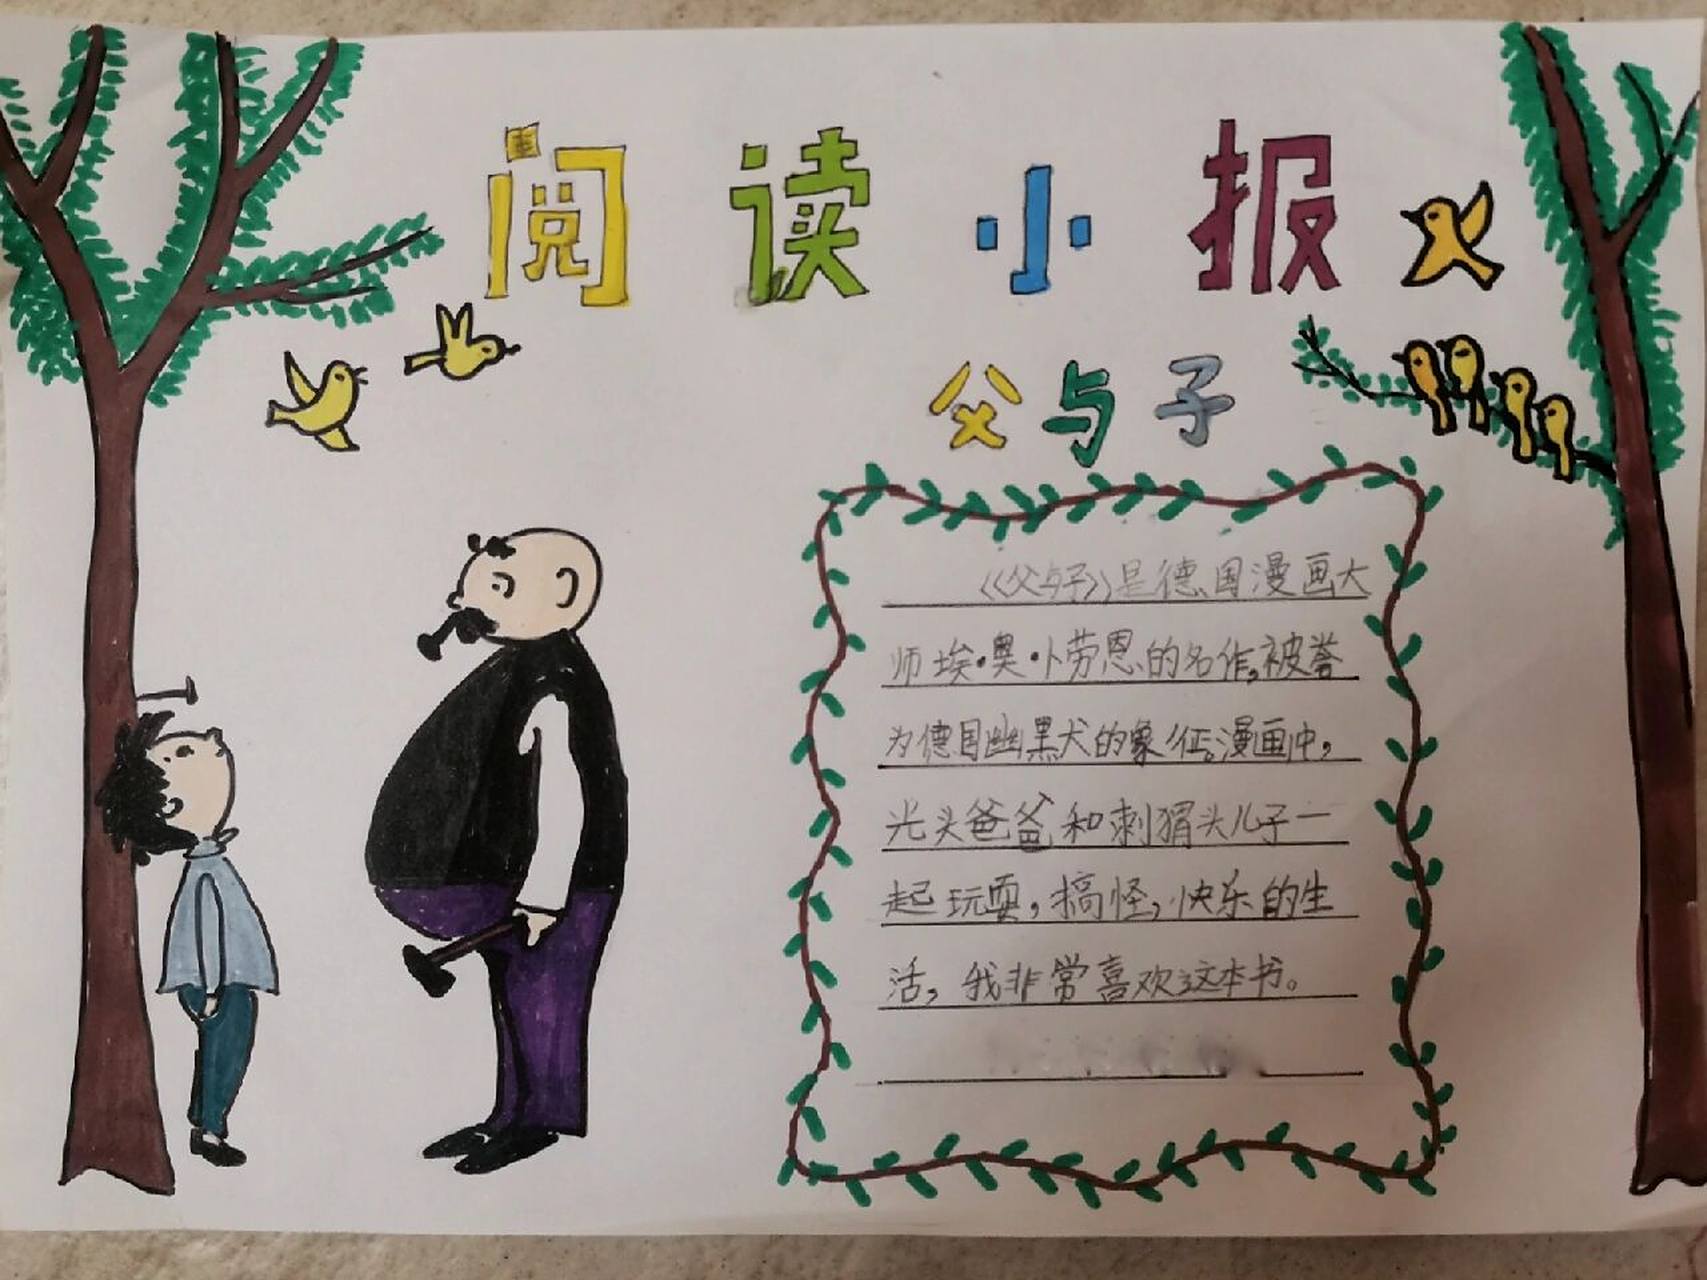 阅读小报
父与子
《父与子》是德国漫画大
师埃·奥·卜劳恩的名作,被誉
为德国幽黑犬的象征。漫画中,
光头爸爸和刺猬头儿子一
起玩耍,搞怪,快乐的生
活,我非常喜欢这本书。